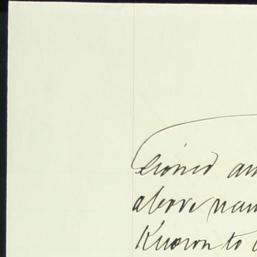 Signed an
above nam
Known to